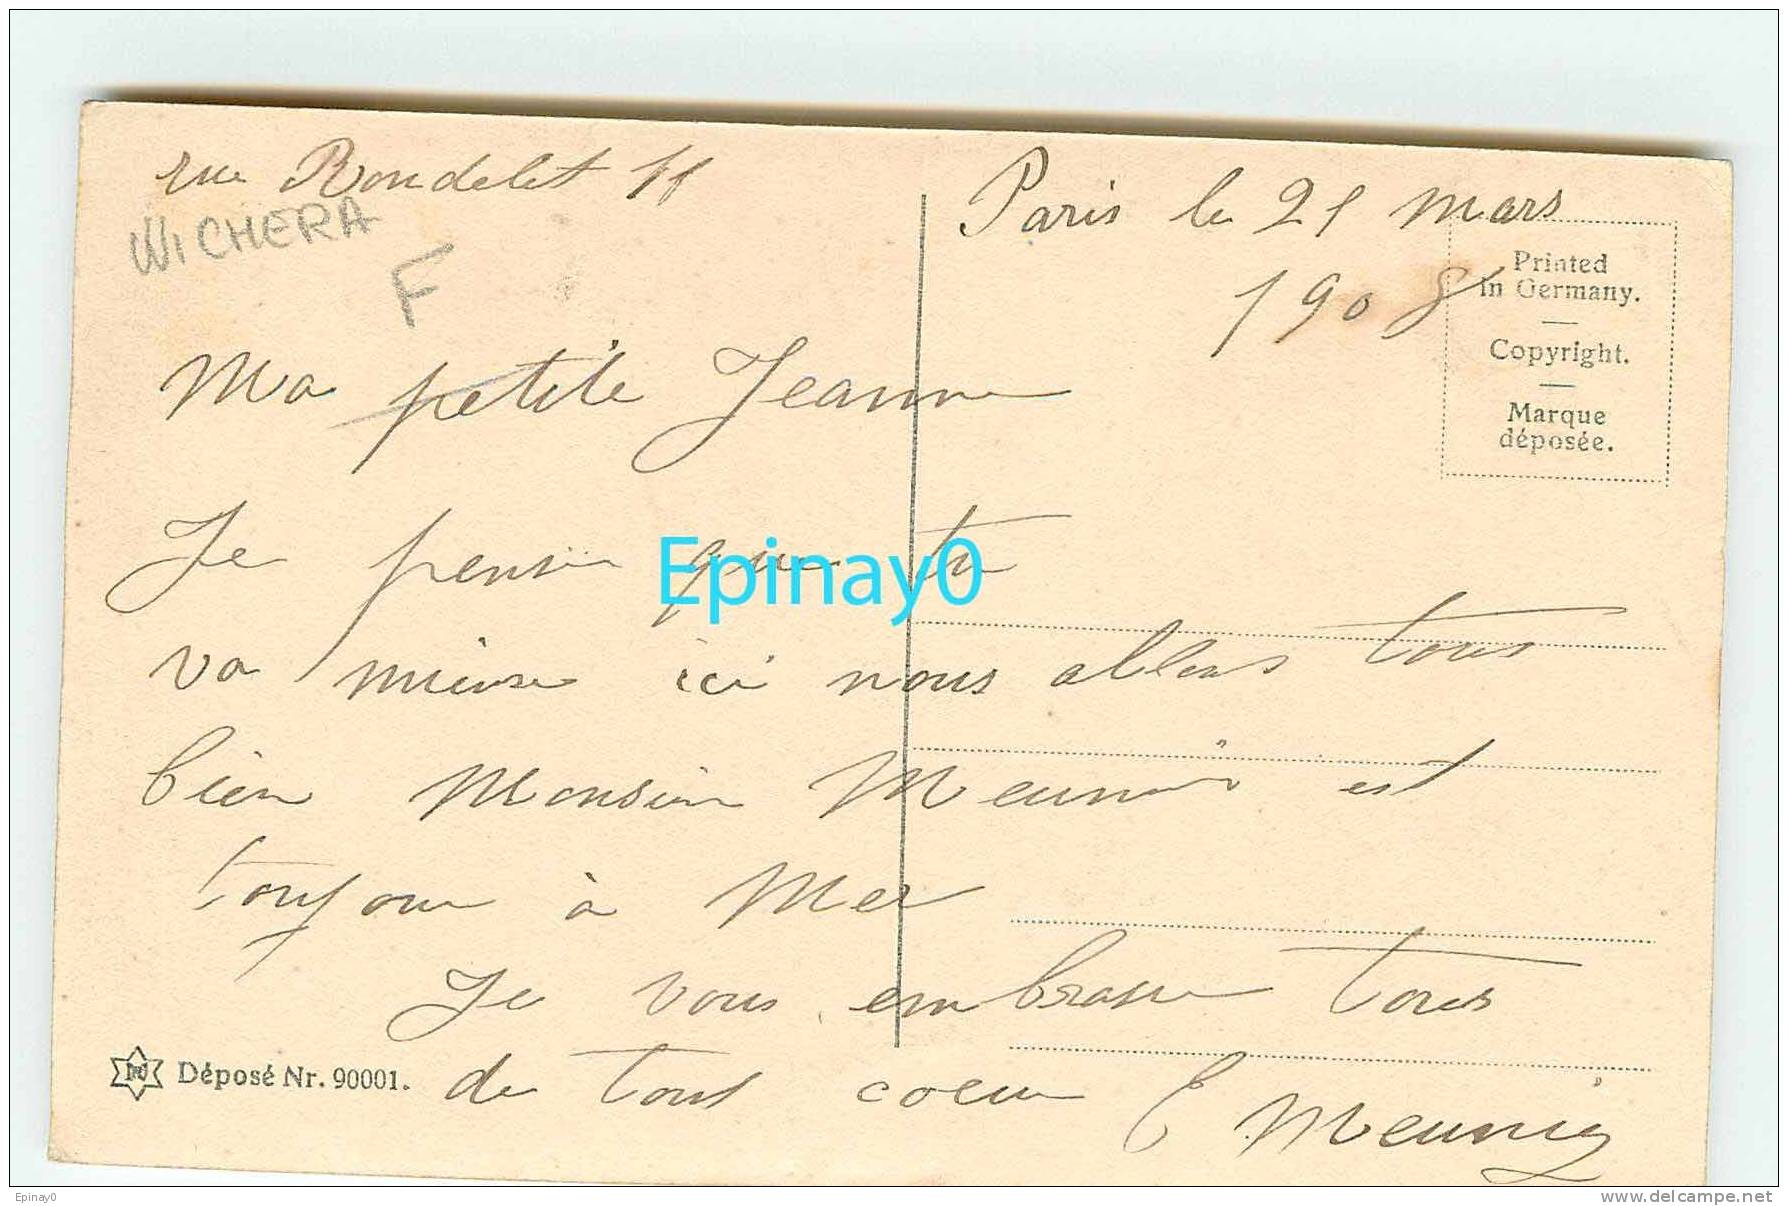 rue Rondelet 11
WICHERA
F
Paris le 21 mars
1908
Printed
in Germany.
—
Copyright.
—
Marque
déposée.
Ma petite Jeanne
Je pense que tu
Epinay0
va mieux ici nous allons tous
bien Monsieur Meunier est
toujour à Mer
Je vous embrasse tous
de tout coeur E Meunier
Déposé Nr. 90001.
Epinay0
www.delcampe.net